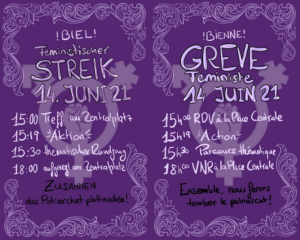 !BIEL!
Feministischer
STREIK
14. JUNI 21
15:00 Treff am Zentralplatz
15:19 *Aktion*
15:30 thematischer Rundgang
18:00 aufgregt am Zentralplatz
ZUSAMMEN
das Patriarchat plattmachen!
!BIENNE!
GREVE
Feministe
14 JUIN 21
15h00 RDV à la Place Centrale
15h19 *Action*
15h30 Parcours thématique
18h00 VNR à la Place Centrale
Ensemble, nous ferons
tomber le patriarcat!